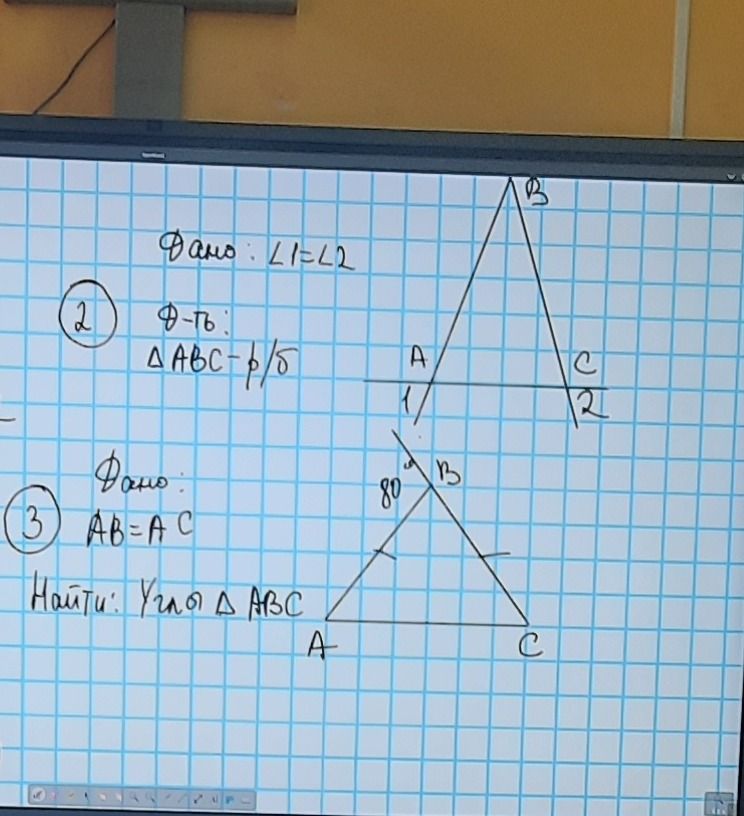 Дано: ∠1=∠2
2
Д-ть:
△ABC-р/б
B
A
C
1
2
Дано:
3
AB=AC
Найти: Углы △ABC
80°
B
A
C